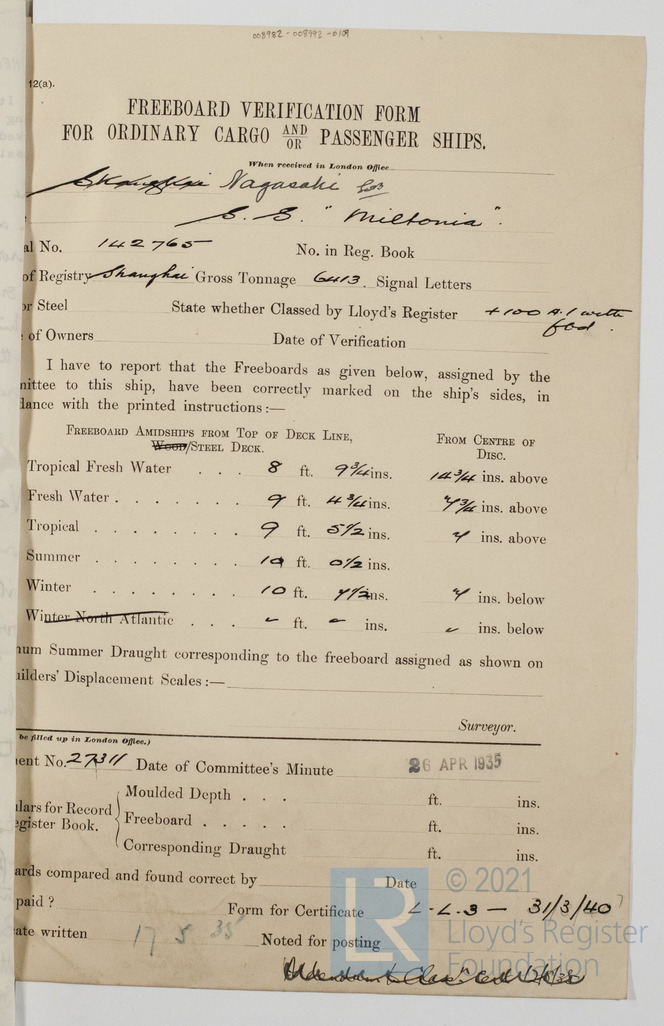 008982-008992-0109
12(a).
FREEBOARD VERIFICATION FORM
FOR ORDINARY CARGO AND/OR PASSENGER SHIPS.
When received in London Office
Shanghai Nagasaki
S.S. "Miltonia".
al No. 142765 No. in Reg. Book
of Registry Shanghai Gross Tonnage 6413. Signal Letters
or Steel State whether Classed by Lloyd's Register +100 A.1 with
fbd.
of Owners Date of Verification
I have to report that the Freeboards as given below, assigned by the
mittee to this ship, have been correctly marked on the ship's sides, in
dance with the printed instructions:—
FREEBOARD AMIDSHIPS FROM TOP OF DECK LINE, FROM CENTRE OF
WOOD/STEEL DECK. DISC.
Tropical Fresh Water . . . 8 ft. 9 3/4 ins. 14 3/4 ins. above
Fresh Water . . . . . . . 9 ft. 4 3/4 ins. 7 3/4 ins. above
Tropical . . . . . . . . 9 ft. 5 1/2 ins. 7 ins. above
Summer . . . . . . . . 10 ft. 0 1/2 ins.
Winter . . . . . . . . 10 ft. 7 1/2 ins. 7 ins. below
Winter North Atlantic . . . - ft. - ins. - ins. below
num Summer Draught corresponding to the freeboard assigned as shown on
uilders' Displacement Scales:—
Surveyor.
be filled up in London Office.)
ment No. 27311 Date of Committee's Minute 26 APR 1935
Moulded Depth . . . ft. ins.
lars for Record
egister Book. Freeboard . . . . . ft. ins.
Corresponding Draught ft. ins.
ards compared and found correct by Date
paid ? Form for Certificate L.L.3 - 31/3/40
ate written 17 5 35 Noted for posting
© 2021
Lloyd's Register
Foundation
LR